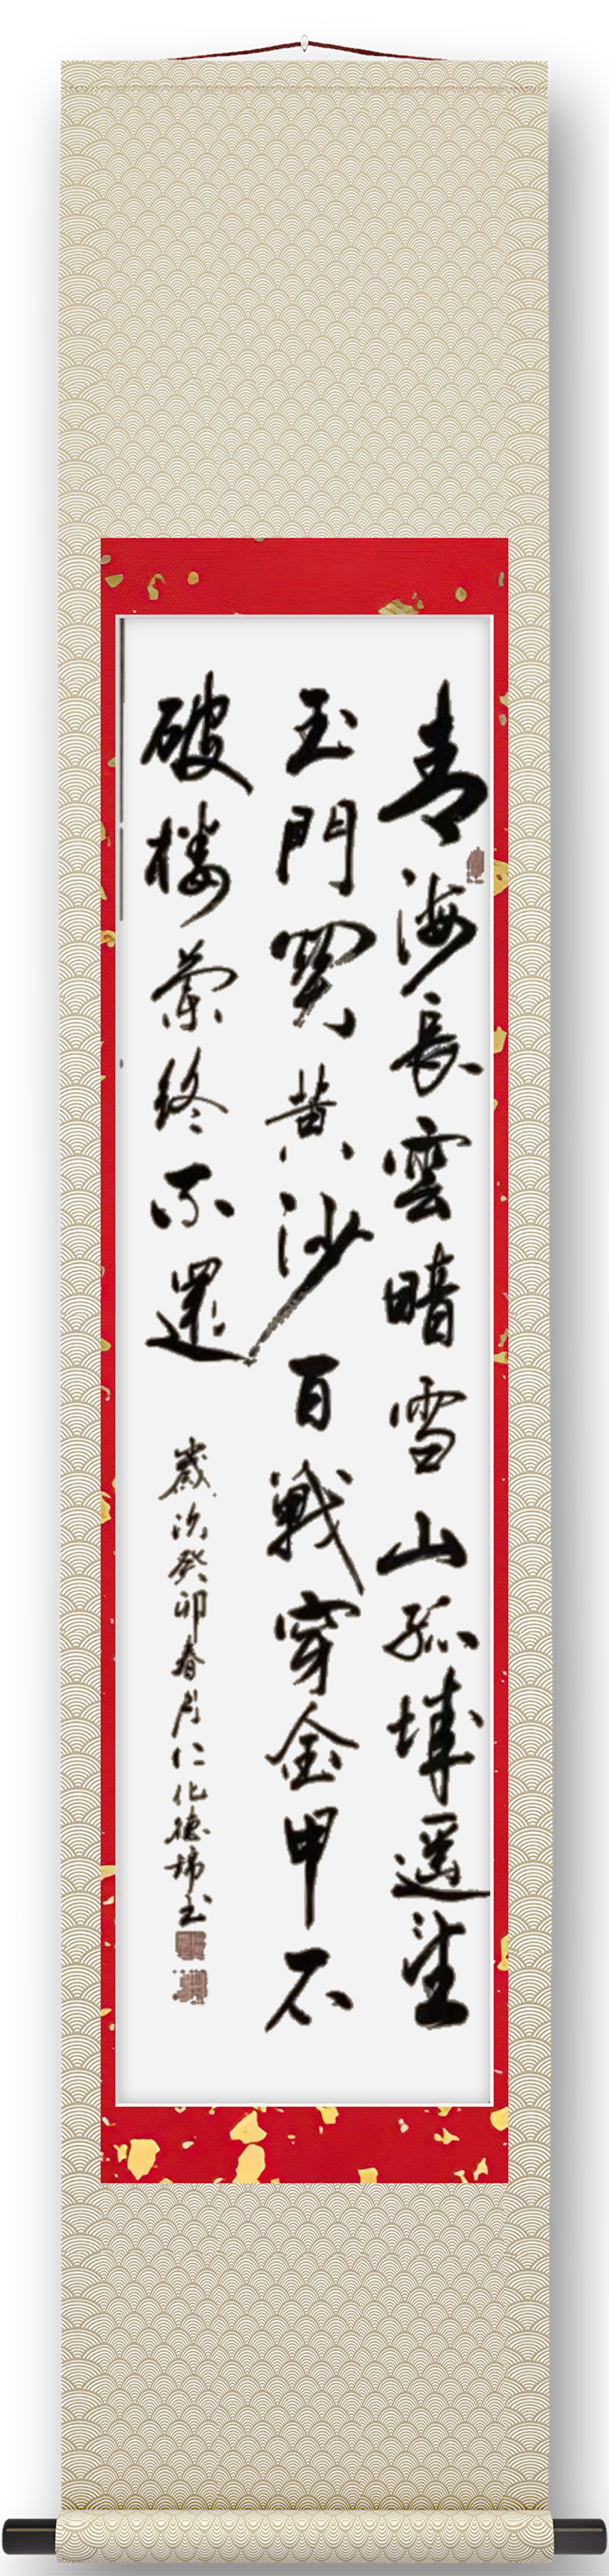 青海長雲暗雪山孤城遥望
玉門關黄沙百戰穿金甲不
破楼蘭終不還
歲次癸卯春月仁化德璋书